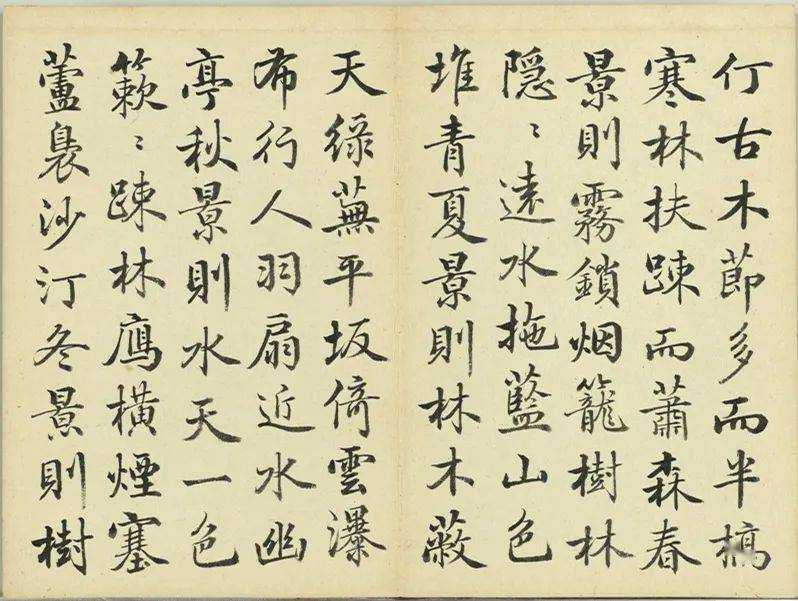 仃古木節多而半槁
寒林扶踈而蕭森春
景則霧鎖烟籠樹林
隠〻遠水拖藍山色
堆青夏景則林木蔽
天緑蕪平坂倚雲瀑
布行人羽扇近水幽
亭秋景則水天一色
簌〻踈林鴈橫煙塞
蘆裊沙汀冬景則樹